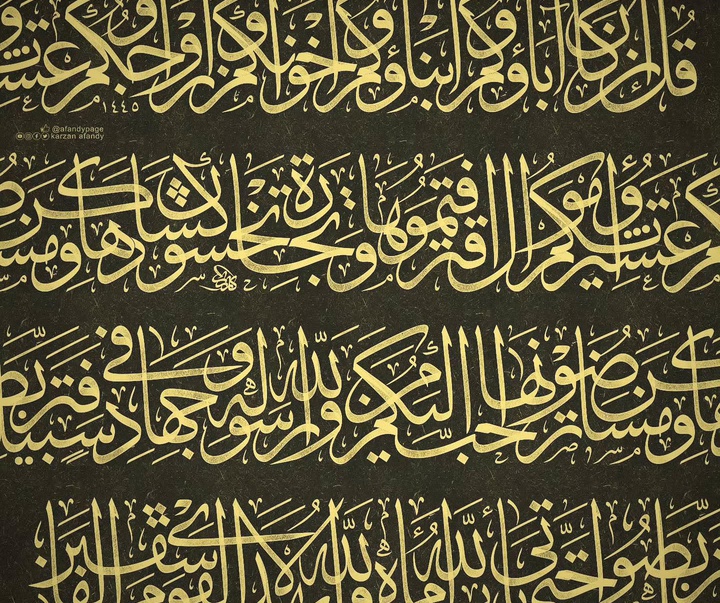 قل إن كان آباؤكم وأبناؤكم وإخوانكم وأزواجكم
١٤٤٥
@afandypage
karzan afandy
وعشيرتكم وأموال اقترفتموها وتجارة تخشون كسادها
ومساكن ترضونها أحب إليكم من الله ورسوله وجهاد في سبيله
فتربصوا حتى يأتي الله بأمره والله لا يهدي القوم الفاسقين